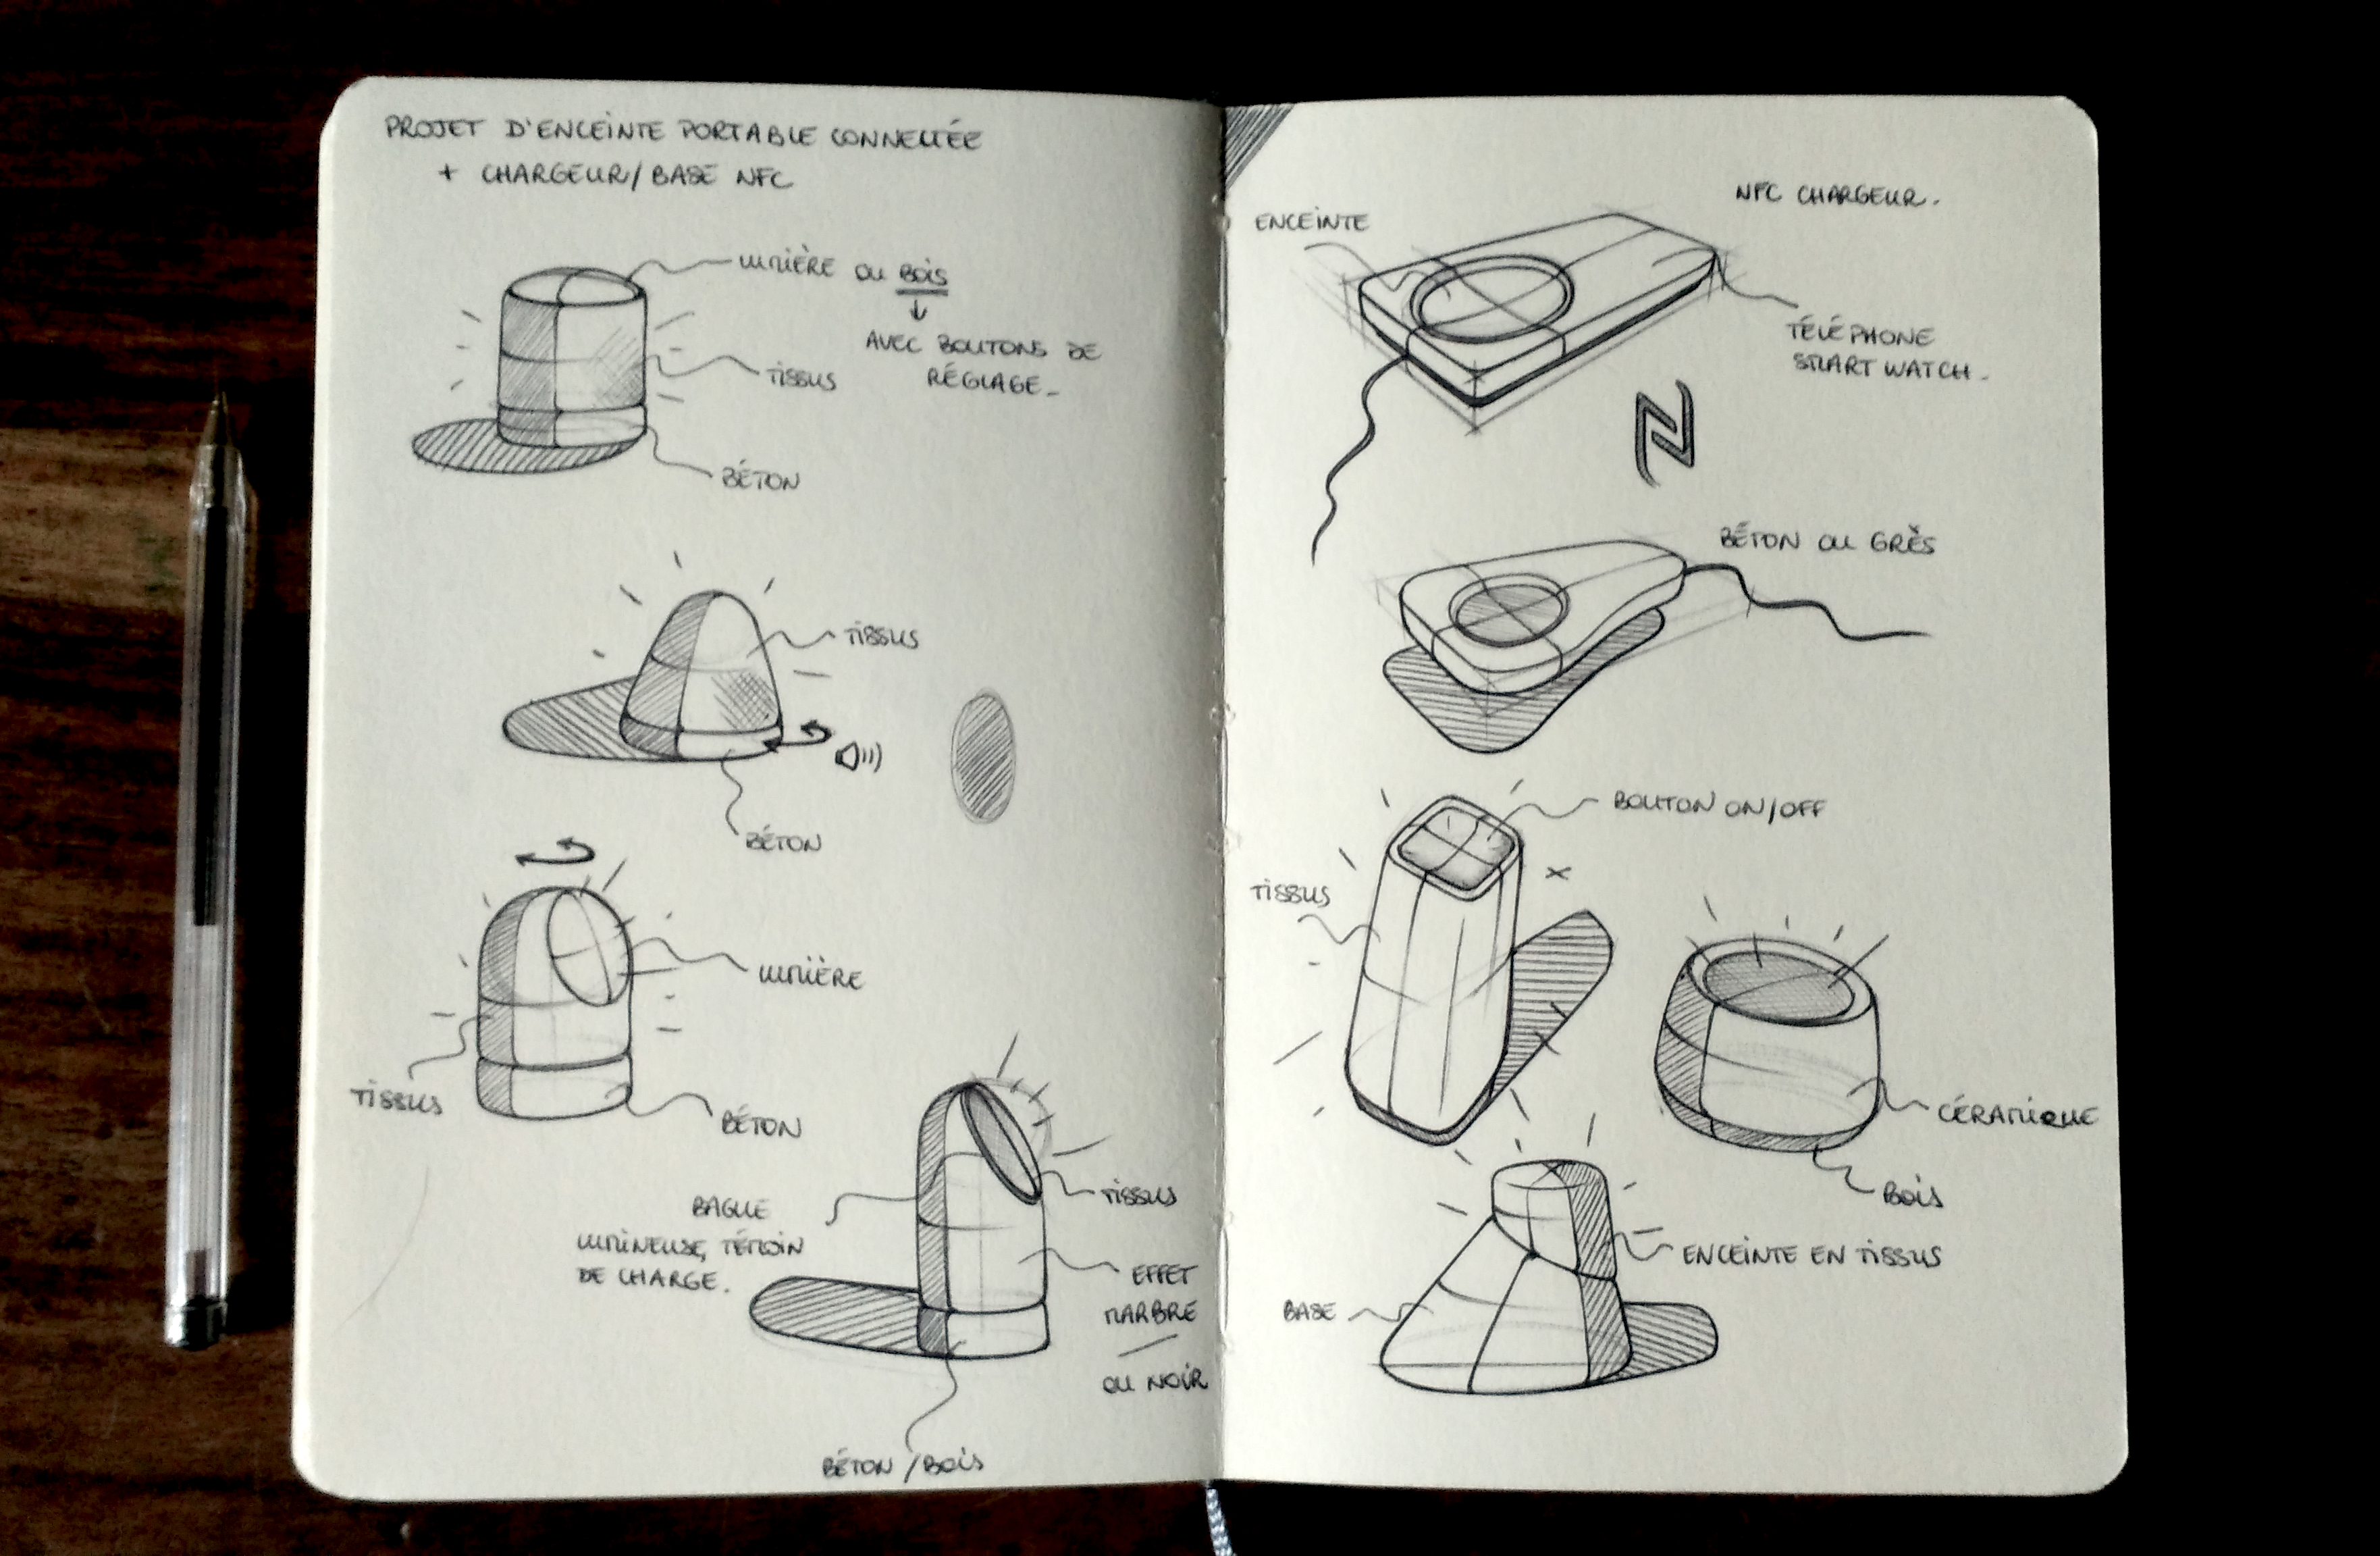 PROJET D'ENCEINTE PORTABLE CONNECTÉE
+ CHARGEUR/BASE NFC
LUMIÈRE OU BOIS
AVEC BOUTONS DE
RÉGLAGE.
TISSUS
BÉTON
TISSUS
BÉTON
LUMIÈRE
TISSUS
BÉTON
TISSUS
BAGUE
LUMINEUSE, TÉMOIN
DE CHARGE.
EFFET
MARBRE
OU NOIR
BÉTON/BOIS
NFC CHARGEUR.
ENCEINTE
TÉLÉPHONE
SMART WATCH.
BÉTON OU GRÈS
BOUTON ON/OFF
TISSUS
CÉRAMIQUE
BOIS
ENCEINTE EN TISSUS
BASE